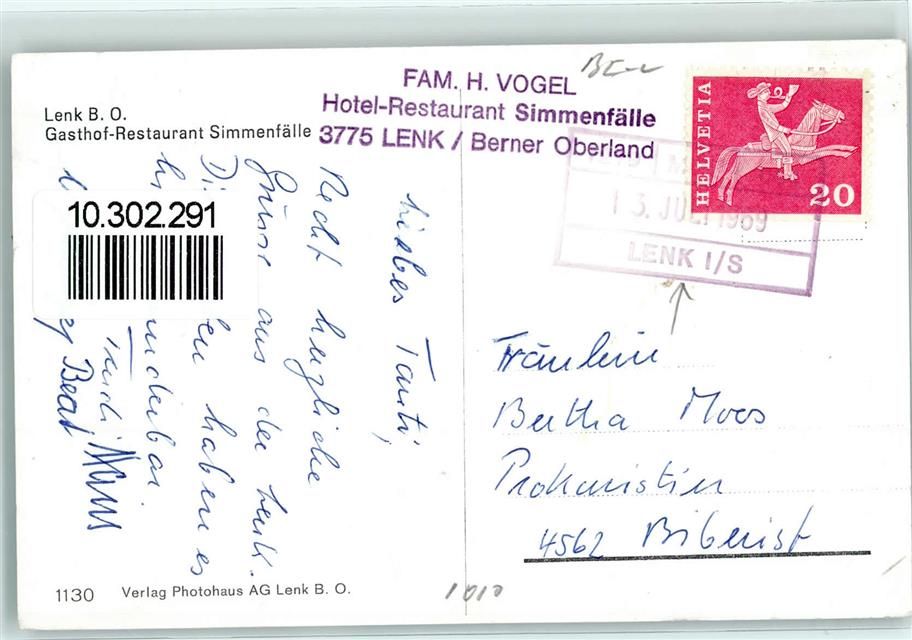 Lenk B. O.
Gasthof-Restaurant Simmenfälle
FAM. H. VOGEL
Hotel-Restaurant Simmenfälle
3775 LENK / Berner Oberland
HELVETIA
20
13. JULI 1969
LENK I/S
10.302.291
Liebes Tanti,
Recht herzliche
Grüsse aus der Lenk.
haben es
Beat
Fräulein
Bertha Moos
Prokuristin
4562 Biberist
1130 Verlag Photohaus AG Lenk B. O.
1010